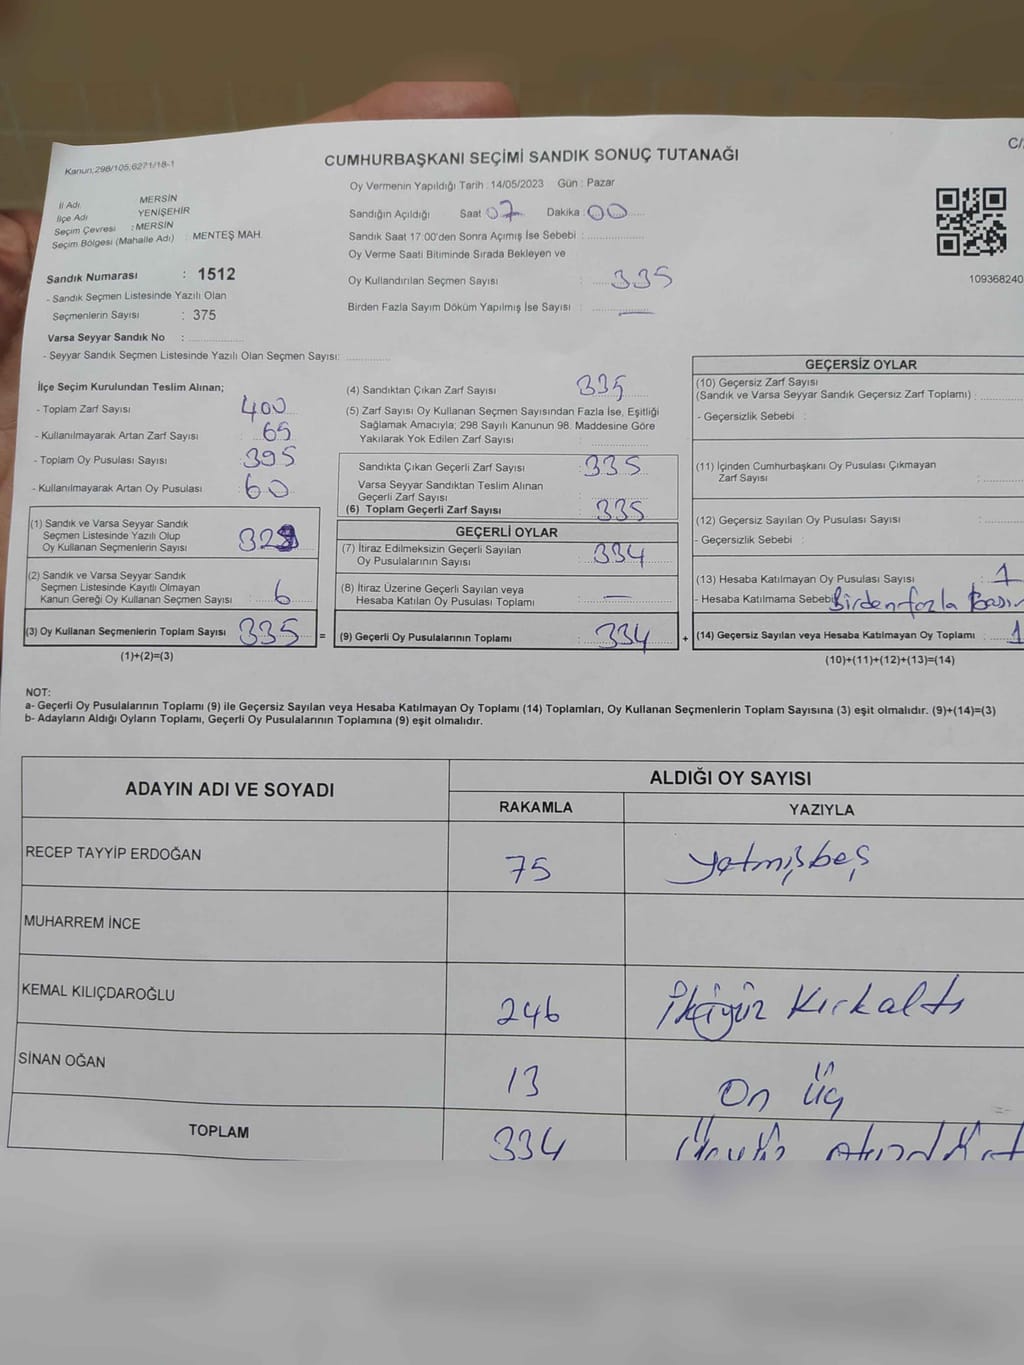 Kanun;298/105;6271/18-1
C/
CUMHURBAŞKANI SEÇİMİ SANDIK SONUÇ TUTANAĞI
İl Adı MERSİN
İlçe Adı YENİŞEHİR
Seçim Çevresi : MERSİN
Seçim Bölgesi (Mahalle Adı) : MENTEŞ MAH.
Oy Vermenin Yapıldığı Tarih : 14/05/2023 Gün : Pazar
Sandığın Açıldığı Saat 07 Dakika : 00
Sandık Saat 17:00'den Sonra Açımış İse Sebebi :
Oy Verme Saati Bitiminde Sırada Bekleyen ve
Oy Kullandırılan Seçmen Sayısı : 335
Birden Fazla Sayım Döküm Yapılmış İse Sayısı : —
109368240
Sandık Numarası : 1512
- Sandık Seçmen Listesinde Yazılı Olan
Seçmenlerin Sayısı : 375
Varsa Seyyar Sandık No :
- Seyyar Sandık Seçmen Listesinde Yazılı Olan Seçmen Sayısı:
İlçe Seçim Kurulundan Teslim Alınan;
- Toplam Zarf Sayısı : 400
- Kullanılmayarak Artan Zarf Sayısı : 65
- Toplam Oy Pusulası Sayısı : 395
- Kullanılmayarak Artan Oy Pusulası : 60
(1) Sandık ve Varsa Seyyar Sandık
Seçmen Listesinde Yazılı Olup
Oy Kullanan Seçmenlerin Sayısı
(2) Sandık ve Varsa Seyyar Sandık
Seçmen Listesinde Kayıtlı Olmayan
Kanun Gereği Oy Kullanan Seçmen Sayısı : 6
(3) Oy Kullanan Seçmenlerin Toplam Sayısı 335 =
(1)+(2)=(3)
(4) Sandıktan Çıkan Zarf Sayısı : 335
(5) Zarf Sayısı Oy Kullanan Seçmen Sayısından Fazla İse, Eşitliği
Sağlamak Amacıyla; 298 Sayılı Kanunun 98. Maddesine Göre
Yakılarak Yok Edilen Zarf Sayısı :
Sandıkta Çıkan Geçerli Zarf Sayısı : 335
Varsa Seyyar Sandıktan Teslim Alınan
Geçerli Zarf Sayısı :
(6) Toplam Geçerli Zarf Sayısı : 335
GEÇERLİ OYLAR
(7) İtiraz Edilmeksizin Geçerli Sayılan
Oy Pusulalarının Sayısı : 334
(8) İtiraz Üzerine Geçerli Sayılan veya
Hesaba Katılan Oy Pusulası Toplamı : —
(9) Geçerli Oy Pusulalarının Toplamı : 334 +
GEÇERSİZ OYLAR
(10) Geçersiz Zarf Sayısı
(Sandık ve Varsa Seyyar Sandık Geçersiz Zarf Toplamı) :
- Geçersizlik Sebebi :
(11) İçinden Cumhurbaşkanı Oy Pusulası Çıkmayan
Zarf Sayısı :
(12) Geçersiz Sayılan Oy Pusulası Sayısı :
- Geçersizlik Sebebi :
(13) Hesaba Katılmayan Oy Pusulası Sayısı : 1
- Hesaba Katılmama Sebebi Birden fazla Basım
(14) Geçersiz Sayılan veya Hesaba Katılmayan Oy Toplamı : 1
(10)+(11)+(12)+(13)=(14)
NOT:
a- Geçerli Oy Pusulalarının Toplamı (9) ile Geçersiz Sayılan veya Hesaba Katılmayan Oy Toplamı (14) Toplamları, Oy Kullanan Seçmenlerin Toplam Sayısına (3) eşit olmalıdır. (9)+(14)=(3)
b- Adayların Aldığı Oyların Toplamı, Geçerli Oy Pusulalarının Toplamına (9) eşit olmalıdır.
ADAYIN ADI VE SOYADI
ALDIĞI OY SAYISI
RAKAMLA YAZIYLA
RECEP TAYYİP ERDOĞAN 75 yetmişbeş
MUHARREM İNCE
KEMAL KILIÇDAROĞLU 246 İkiyüz Kırkaltı
SİNAN OĞAN 13 On üç
TOPLAM 334